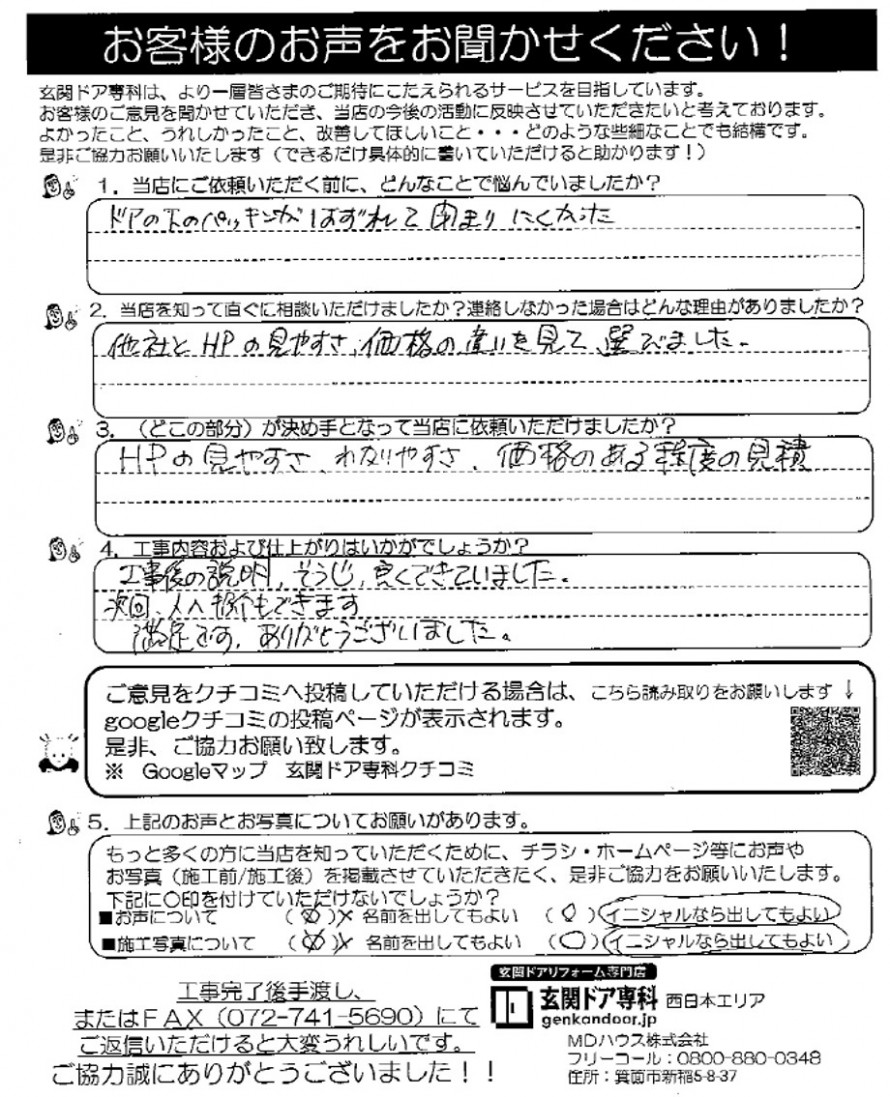 お客様のお声をお聞かせください！
玄関ドア専科は、より一層皆さまのご期待にこたえられるサービスを目指しています。
お客様のご意見を聞かせていただき、当店の今後の活動に反映させていただきたいと考えております。
よかったこと、うれしかったこと、改善してほしいこと・・・どのような些細なことでも結構です。
是非ご協力お願いいたします（できるだけ具体的に書いていただけると助かります！）
1．当店にご依頼いただく前に、どんなことで悩んでいましたか？
ドアの下のパッキンがはずれて閉まりにくかった
2．当店を知って直ぐに相談いただけましたか？連絡しなかった場合はどんな理由がありましたか？
他社とHPの見やすさ、価格の違いを見て、選びました。
3．（どこの部分）が決め手となって当店に依頼いただけましたか？
HPの見やすさ、わかりやすさ、価格のある程度の見積
4．工事内容および仕上がりはいかがでしょうか？
工事後の説明、そうじ、良くできていました。
次回、人へ紹介もできます
満足です。ありがとうございました。
ご意見をクチコミへ投稿していただける場合は、こちら読み取りをお願いします↓
googleクチコミの投稿ページが表示されます。
是非、ご協力お願い致します。
※　Googleマップ　玄関ドア専科クチコミ
5．上記のお声とお写真についてお願いがあります。
もっと多くの方に当店を知っていただくために、チラシ・ホームページ等にお声や
お写真（施工前/施工後）を掲載させていただきたく、是非ご協力をお願いいたします。
下記に〇印を付けていただけないでしょうか？
■お声について　（　）× 名前を出してもよい　（〇）イニシャルなら出してもよい
■施工写真について　（　）× 名前を出してもよい　（〇）（イニシャルなら出してもよい）
工事完了後手渡し、
またはFAX（072-741-5690）にて
ご返信いただけると大変うれしいです。
ご協力誠にありがとうございました！！
玄関ドアリフォーム専門店
玄関ドア専科 西日本エリア
genkandoor.jp
MDハウス株式会社
フリーコール：0800-880-0348
住所：箕面市新稲5-8-37